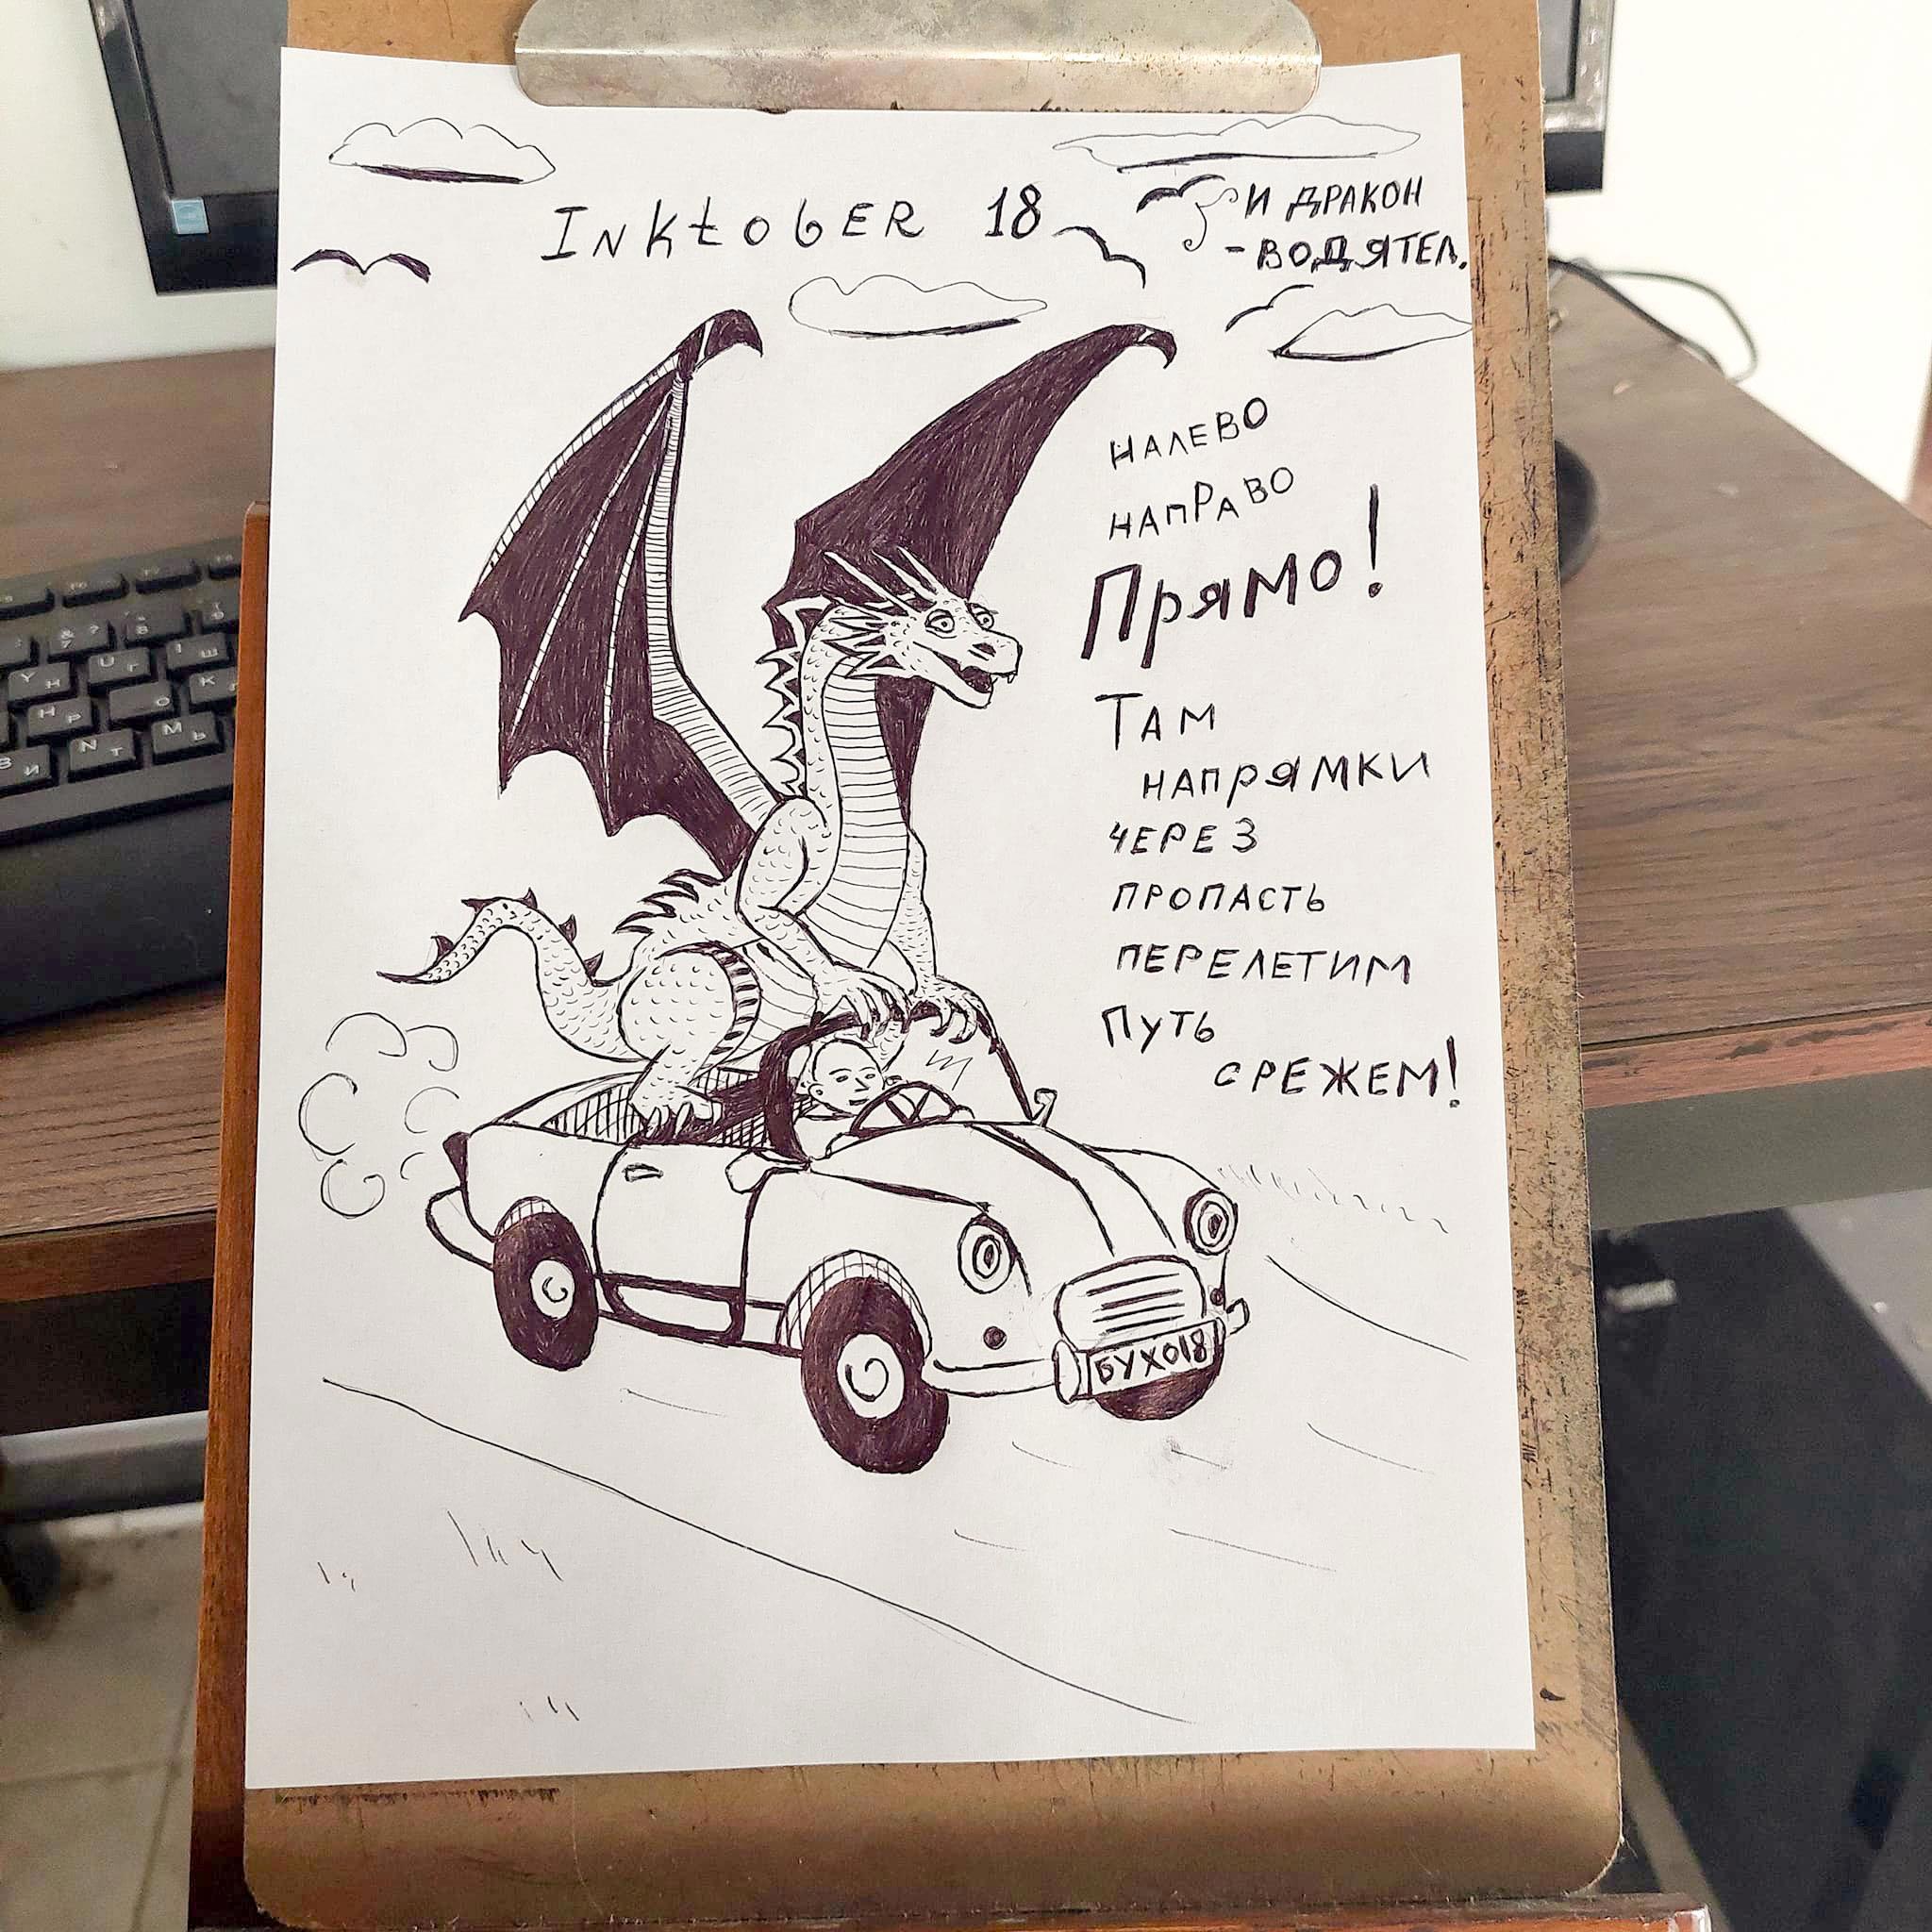 INKtOBER 18
И ДРАКОН
-ВОДЯТЕЛ.
НАЛЕВО
НАПРАВО
ПРЯМО!
ТАМ
НАПРЯМКИ
ЧЕРЕЗ
ПРОПАСТЬ
ПЕРЕЛЕТИМ
ПУТЬ
СРЕЖЕМ!
БУХ018